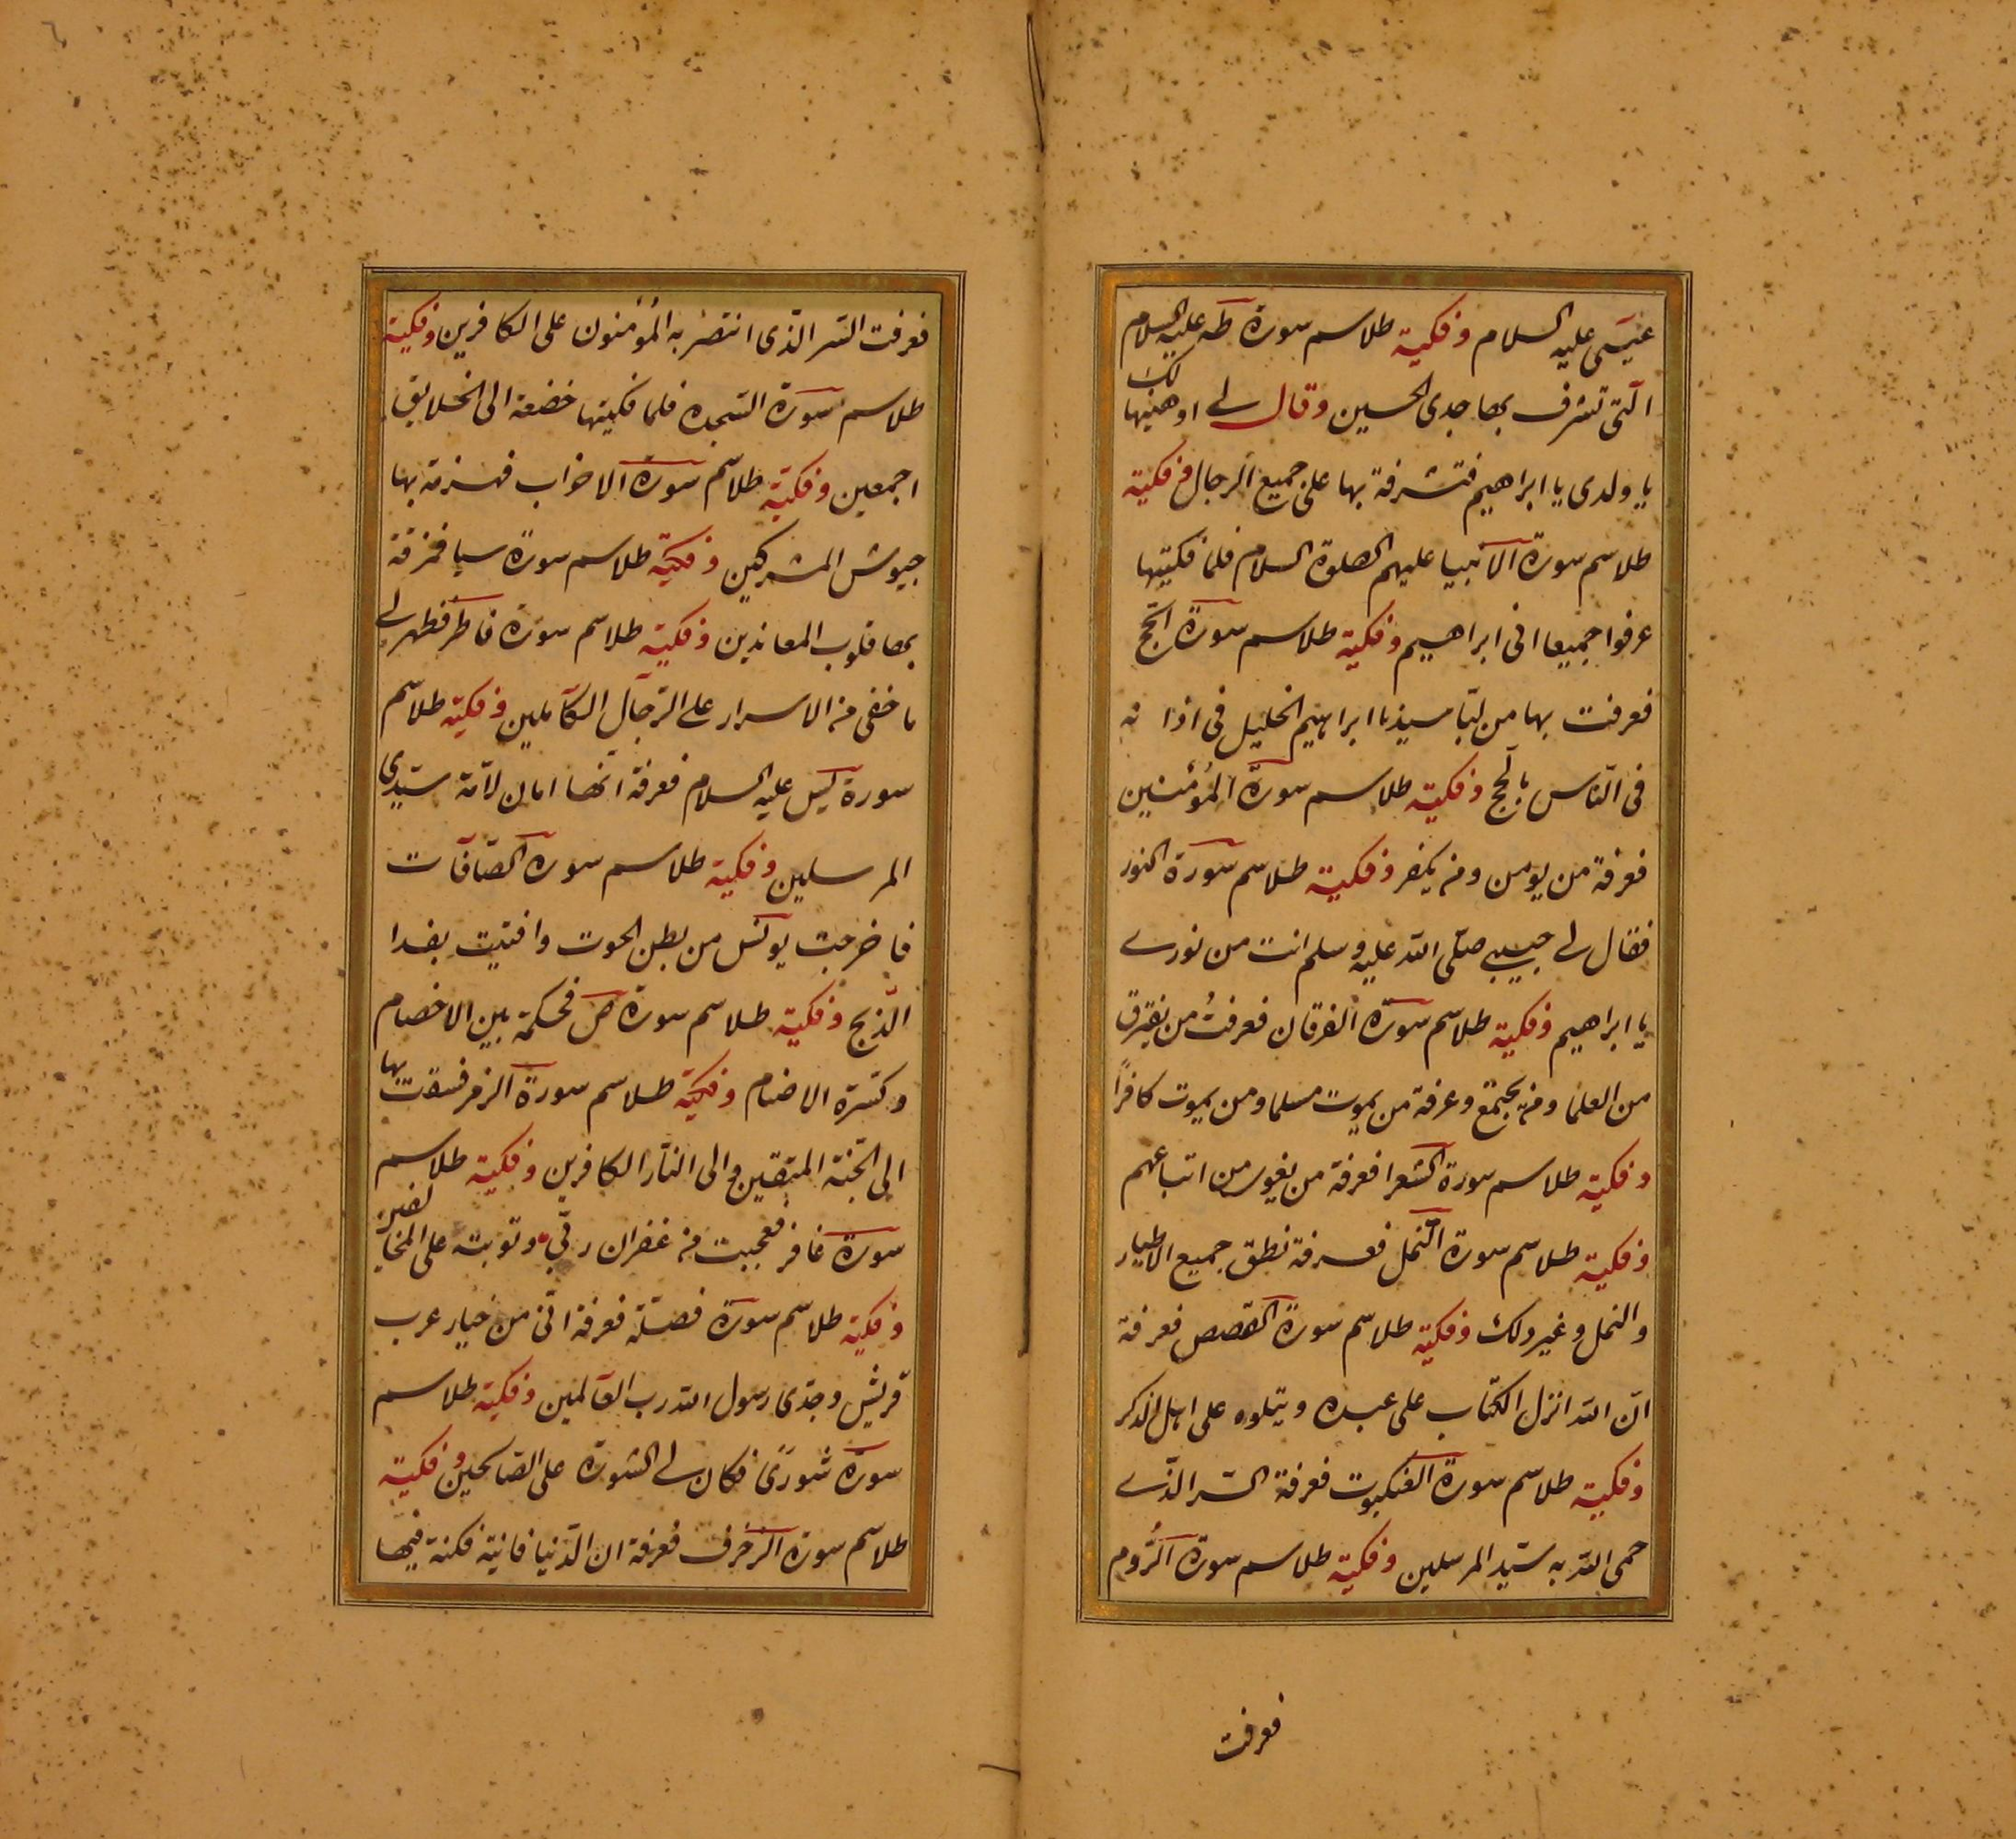 عيسى عليه السلام وفكيت طلاسم سورة طه عليه السلام
التى تشرف بها جدى الحسين وقال لي اوهبتها لك
يا ولدى يا ابراهيم فتشرفة بها على جميع الرجال وفكيت
طلاسم سورة الانبيا عليهم الصلوة السلام فلما فكيتها
عرفوا جميعا انى ابراهيم وفكيت طلاسم سورة الحج
فعرفت بها من لبا سيدنا ابراهيم الخليل فى اذا نه
فى الناس بالحج وفكيت طلاسم سورة المؤمنين
فعرفة من يومن ومن يكفر وفكيت طلاسم سورة النور
فقال لي حبيبي صلى الله عليه وسلم انت من نوري
يا ابراهيم وفكيت طلاسم سورة الفرقان فعرفت من يفترق
من العلما ومن يجتمع وعرفة من يموت مسلما ومن يموت كافرا
وفكيت طلاسم سورة الشعرا فعرفة من يغوى من اتباعهم
وفكيت طلاسم سورة النمل فعرفة نطق جميع الاطيار
والنمل وغير ذلك وفكيت طلاسم سورة القصص فعرفة
ان الله انزل الكتاب على عبده ويتلوه على اهل الذكر
وفكيت طلاسم سورة العنكبوت فعرفة السر الذي
حمى الله به سيد المرسلين وفكيت طلاسم سورة الروم
فعرفت
فعرفت السر الذى انتصر به المؤمنون على الكافرين وفكيت
طلاسم سورة السجده فلما فكيتها خضعة الى الخلايق
اجمعين وفكيت طلاسم سورة الاحزاب فهزمة بها
جيوش المشركين وفكيت طلاسم سورة سبا فمزقة
بها قلوب المعاندين وفكيت طلاسم سورة فاطر فظهر لي
ما خفى من الاسرار على الرجال الكاملين وفكيت طلاسم
سورة يس عليه السلام فعرفة انها امان لامة سيدى
المرسلين وفكيت طلاسم سورة الصافات
فاخرجت يونس من بطن الحوت وافتيت بفدا
الذبيح وفكيت طلاسم سورة ص فحكمة بين الاخصام
وكسرة الاصنام وفكيت طلاسم سورة الزمر فسقت بها
الى الجنة المتقين والى النار الكافرين وفكيت طلاسم
سورة غافر فعجبت من غفران ربي وتوبته على المخالفين
وفكيت طلاسم سورة فصلة فعرفة انى من خيار عرب
قريش وجدى رسول الله رب العالمين وفكيت طلاسم
سورة شورى فكان لي الشورة على الصالحين وفكيت
طلاسم سورة الزخرف فعرفة ان الدنيا فانية فكنة فيها